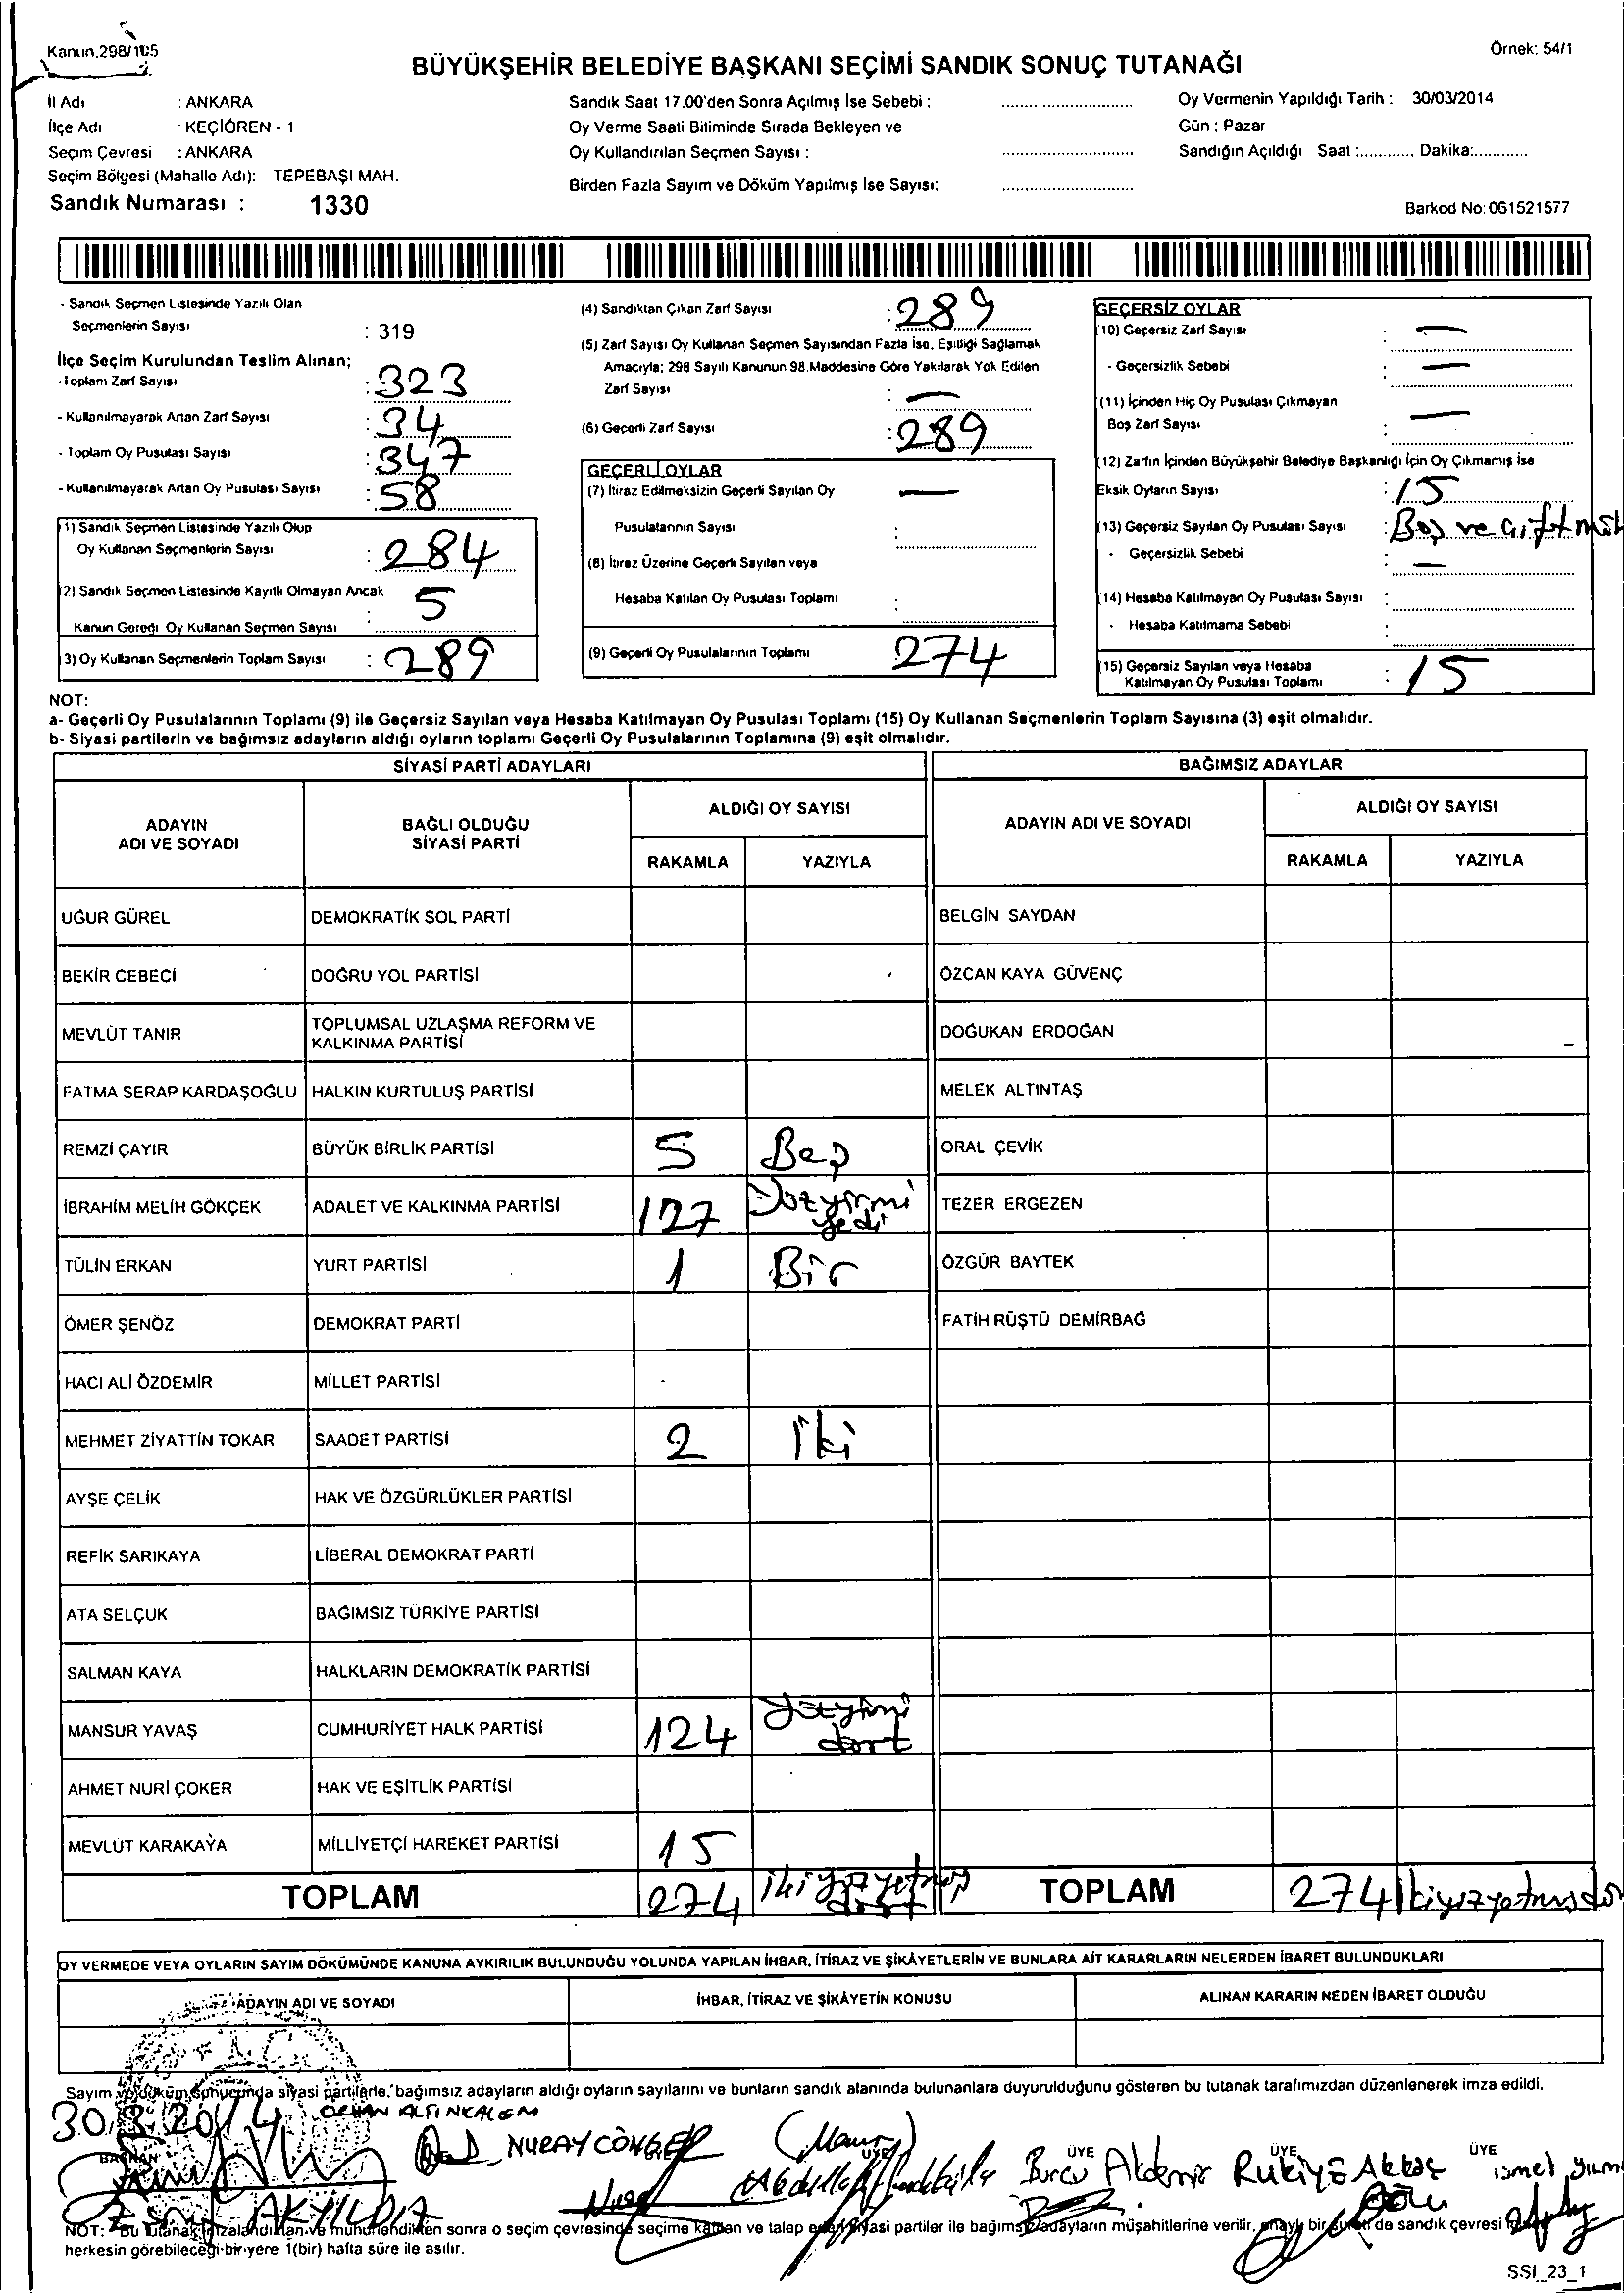 Kanun.298/105
Örnek: 54/1
BÜYÜKŞEHİR BELEDİYE BAŞKANI SEÇİMİ SANDIK SONUÇ TUTANAĞI
İl Adı : ANKARA
İlçe Adı KEÇİÖREN - 1
Seçim Çevresi : ANKARA
Seçim Bölgesi (Mahalle Adı): TEPEBAŞI MAH.
Sandık Numarası : 1330
Sandık Saat 17.00'den Sonra Açılmış İse Sebebi :
Oy Verme Saati Bitiminde Sırada Bekleyen ve
Oy Kullandırılan Seçmen Sayısı :
Birden Fazla Sayım ve Döküm Yapılmış İse Sayısı:
Oy Vermenin Yapıldığı Tarih : 30/03/2014
Gün : Pazar
Sandığın Açıldığı Saat :........... Dakika:...........
Barkod No: 061521577
- Sandık Seçmen Listesinde Yazılı Olan
Seçmenlerin Sayısı : 319
İlçe Seçim Kurulundan Teslim Alınan;
-Toplam Zarf Sayısı : 323
- Kullanılmayarak Artan Zarf Sayısı : 34
- Toplam Oy Pusulası Sayısı : 347
- Kullanılmayarak Artan Oy Pusulası Sayısı : 58
(1) Sandık Seçmen Listesinde Yazılı Olup
Oy Kullanan Seçmenlerin Sayısı : 284
(2) Sandık Seçmen Listesinde Kayıtlı Olmayan Ancak
Kanun Gereği Oy Kullanan Seçmen Sayısı : 5
(3) Oy Kullanan Seçmenlerin Toplam Sayısı : 289
(4) Sandıktan Çıkan Zarf Sayısı : 289
(5) Zarf Sayısı Oy Kullanan Seçmen Sayısından Fazla İse, Eşitliği Sağlamak
Amacıyla; 298 Sayılı Kanunun 98.Maddesine Göre Yakılarak Yok Edilen
Zarf Sayısı : —
(6) Geçerli Zarf Sayısı : 289
GEÇERLİ OYLAR
(7) İtiraz Edilmeksizin Geçerli Sayılan Oy
Pusulalarının Sayısı : —
(8) İtiraz Üzerine Geçerli Sayılan veya
Hesaba Katılan Oy Pusulası Toplamı :
(9) Geçerli Oy Pusulalarının Toplamı 274
GEÇERSİZ OYLAR
(10) Geçersiz Zarf Sayısı : —
- Geçersizlik Sebebi : —
(11) İçinden Hiç Oy Pusulası Çıkmayan
Boş Zarf Sayısı : —
(12) Zarfın İçinden Büyükşehir Belediye Başkanlığı İçin Oy Çıkmamış İse
Eksik Oyların Sayısı : 15
(13) Geçersiz Sayılan Oy Pusulası Sayısı : Boş ve çift
- Geçersizlik Sebebi : —
(14) Hesaba Katılmayan Oy Pusulası Sayısı :
- Hesaba Katılmama Sebebi :
(15) Geçersiz Sayılan veya Hesaba
Katılmayan Oy Pusulası Toplamı : 15
NOT:
a- Geçerli Oy Pusulalarının Toplamı (9) ile Geçersiz Sayılan veya Hesaba Katılmayan Oy Pusulası Toplamı (15) Oy Kullanan Seçmenlerin Toplam Sayısına (3) eşit olmalıdır.
b- Siyasi partilerin ve bağımsız adayların aldığı oyların toplamı Geçerli Oy Pusulalarının Toplamına (9) eşit olmalıdır.
SİYASİ PARTİ ADAYLARI BAĞIMSIZ ADAYLAR
ADAYIN
ADI VE SOYADI
BAĞLI OLDUĞU
SİYASİ PARTİ
ALDIĞI OY SAYISI
RAKAMLA YAZIYLA
ADAYIN ADI VE SOYADI
ALDIĞI OY SAYISI
RAKAMLA YAZIYLA
UĞUR GÜREL DEMOKRATİK SOL PARTİ BELGİN SAYDAN
BEKİR CEBECİ DOĞRU YOL PARTİSİ ÖZCAN KAYA GÜVENÇ
MEVLÜT TANIR TOPLUMSAL UZLAŞMA REFORM VE
KALKINMA PARTİSİ DOĞUKAN ERDOĞAN
FATMA SERAP KARDAŞOĞLU HALKIN KURTULUŞ PARTİSİ MELEK ALTINTAŞ
REMZİ ÇAYIR BÜYÜK BİRLİK PARTİSİ 5 Beş ORAL ÇEVİK
İBRAHİM MELİH GÖKÇEK ADALET VE KALKINMA PARTİSİ 127 Yüzyirmi
yedi TEZER ERGEZEN
TÜLİN ERKAN YURT PARTİSİ 1 Bir ÖZGÜR BAYTEK
ÖMER ŞENÖZ DEMOKRAT PARTİ FATİH RÜŞTÜ DEMİRBAĞ
HACI ALİ ÖZDEMİR MİLLET PARTİSİ
MEHMET ZİYATTİN TOKAR SAADET PARTİSİ 2 İki
AYŞE ÇELİK HAK VE ÖZGÜRLÜKLER PARTİSİ
REFİK SARIKAYA LİBERAL DEMOKRAT PARTİ
ATA SELÇUK BAĞIMSIZ TÜRKİYE PARTİSİ
SALMAN KAYA HALKLARIN DEMOKRATİK PARTİSİ
MANSUR YAVAŞ CUMHURİYET HALK PARTİSİ 124 yüzyirmi
dört
AHMET NURİ ÇOKER HAK VE EŞİTLİK PARTİSİ
MEVLÜT KARAKAYA MİLLİYETÇİ HAREKET PARTİSİ 15
TOPLAM 274 ikiyüzyetmiş
dört TOPLAM 274 ikiyüzyetmişdö
OY VERMEDE VEYA OYLARIN SAYIM DÖKÜMÜNDE KANUNA AYKIRILIK BULUNDUĞU YOLUNDA YAPILAN İHBAR, İTİRAZ VE ŞİKÂYETLERİN VE BUNLARA AİT KARARLARIN NELERDEN İBARET BULUNDUKLARI
ADAYIN ADI VE SOYADI İHBAR, İTİRAZ VE ŞİKÂYETİN KONUSU ALINAN KARARIN NEDEN İBARET OLDUĞU
Sayım ve döküm sonucunda siyasi partilerle, bağımsız adayların aldığı oyların sayılarını ve bunların sandık alanında bulunanlara duyurulduğunu gösteren bu tutanak tarafımızdan düzenlenerek imza edildi.
30.3.2014 ORHAN ALTINKALEM
BAŞKAN NURAY ÜYE ÜYE ÜYE ÜYE
AKYILDIZ Burcu Akdemir Rukiye Akkaş
NOT: Bu tutanak imzalandıktan ve mühürlendikten sonra o seçim çevresinde seçime katılan ve talep eden siyasi partiler ile bağımsız adayların müşahitlerine verilir, onaylı bir sureti de sandık çevresi
herkesin görebileceği bir yere 1(bir) hafta süre ile asılır.
SSI_23_1